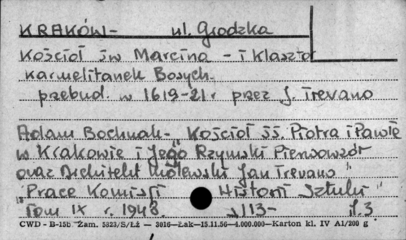 KRAKÓW - ul. Grodzka
Kościół św Marcina - i Klasztor
Karmelitanek Bosych.
przebud. w 1619-21 r przez J. Trevano
Adam Bochnak - "Kościół ś.ś. Piotra i Pawła
w Krakowie i Jego Rzymski Pierwowzór
oraz Architekt Królewski Jan Trevano"
"Prace Komisji Historii Sztuki"
Tom IX r. 1948. s 113-
CWD - D-15b Zam. 5323/S/Łż — 3016—Łak—15.11.56—4.000.000—Karton kl. IV A1/200 g